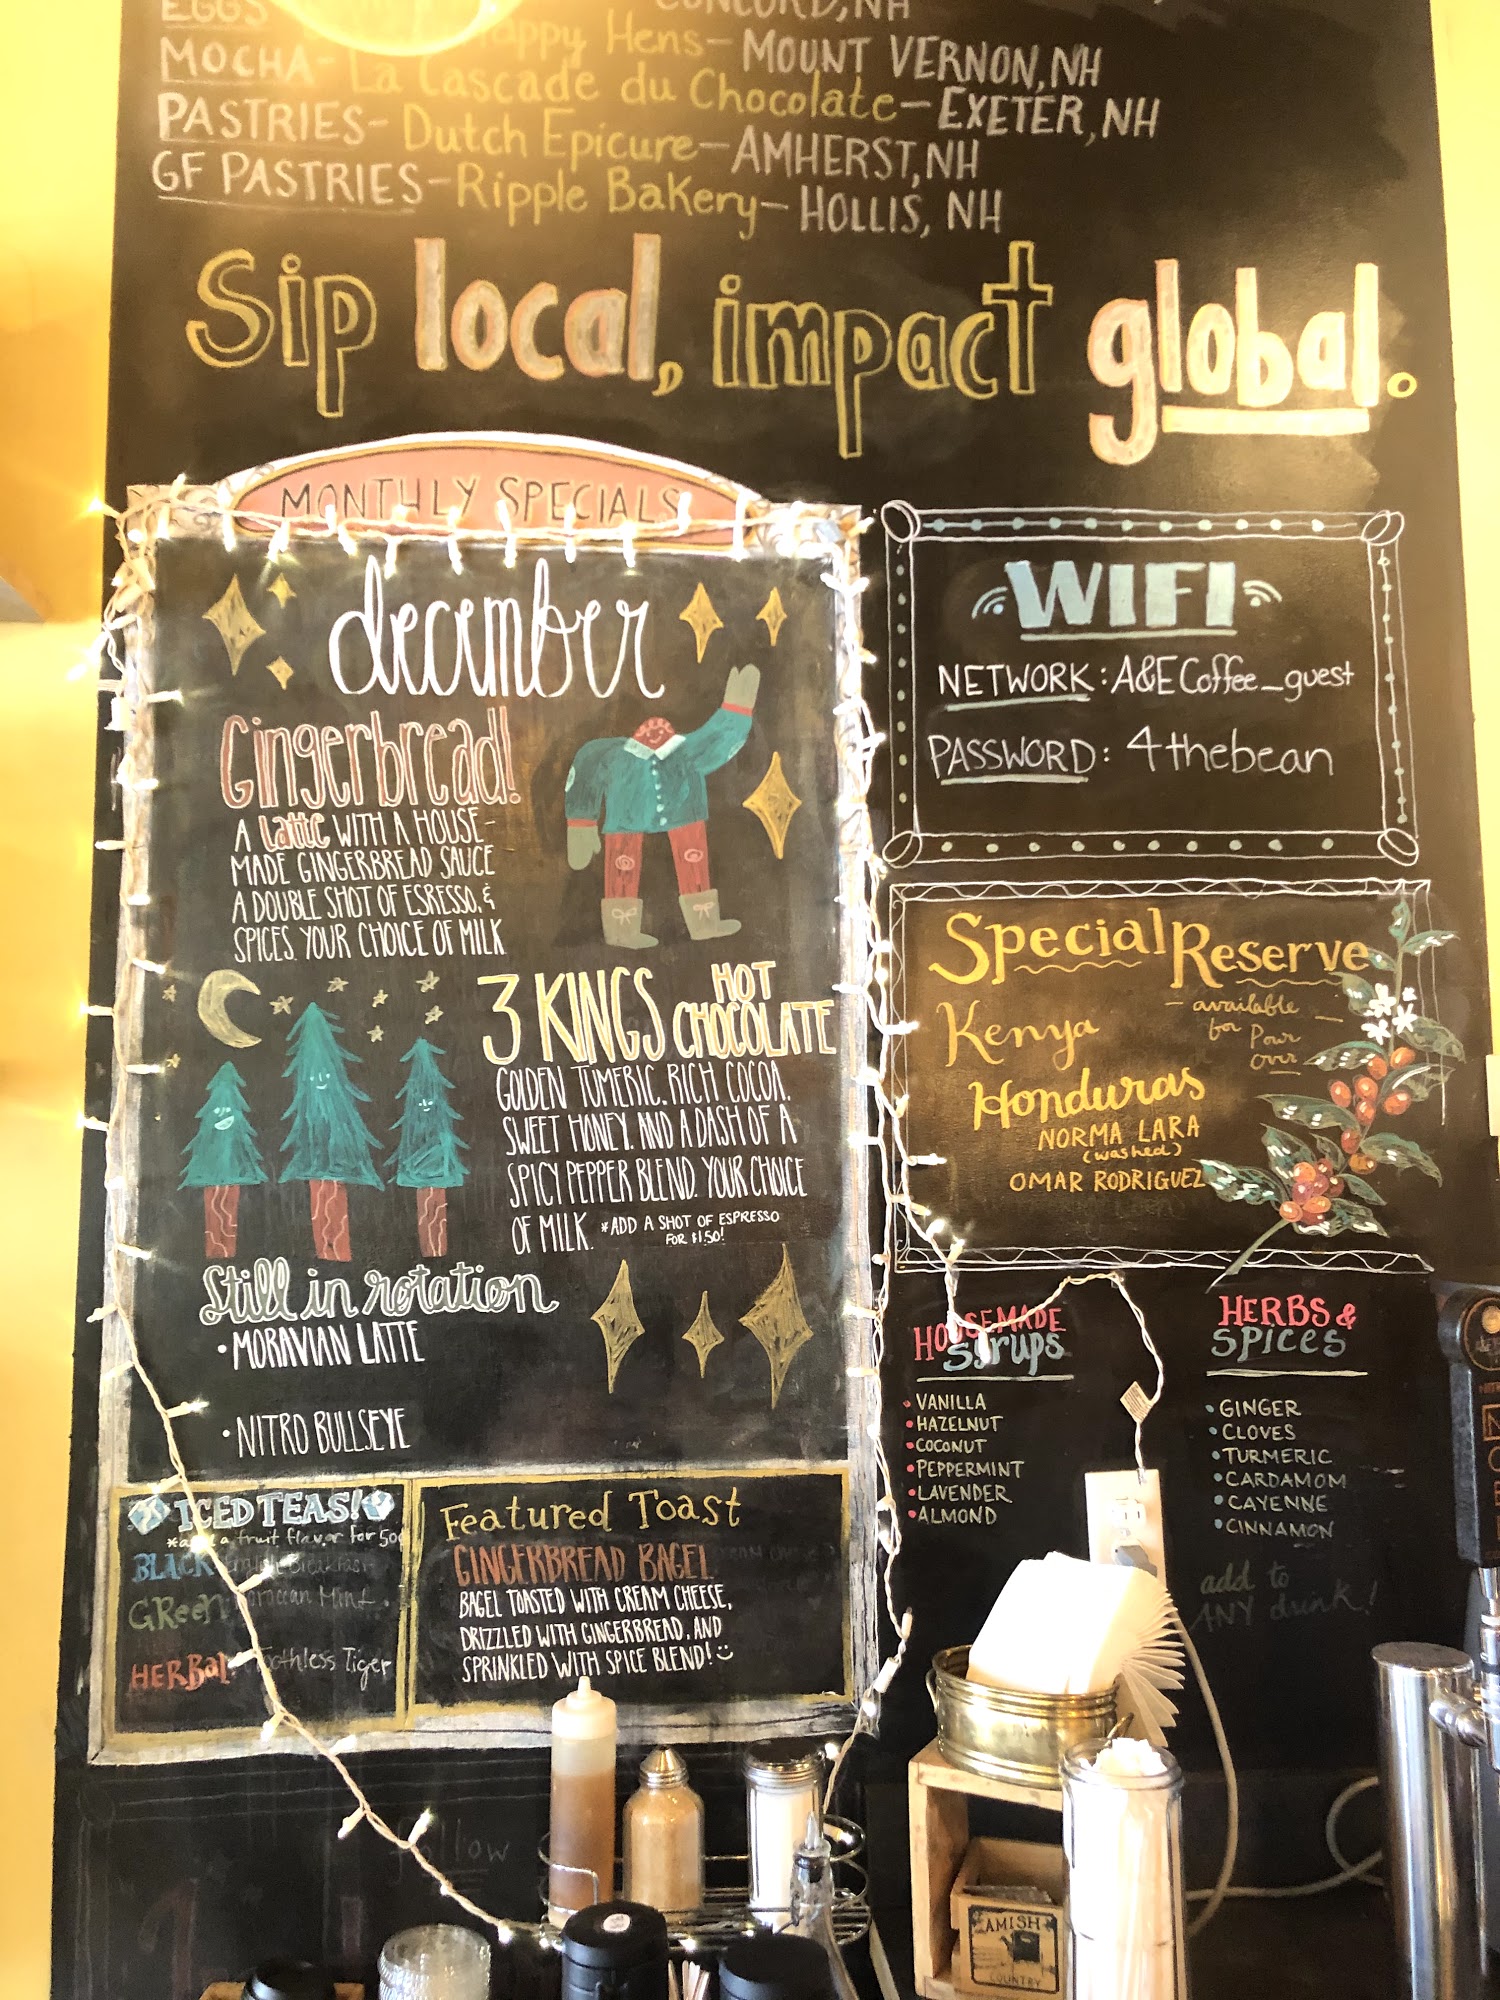 EGGS
CONCORD, NH
Happy Hens- MOUNT VERNON, NH
MOCHA- La Cascade du Chocolate- EXETER, NH
PASTRIES- Dutch Epicure- AMHERST, NH
GF PASTRIES- Ripple Bakery- HOLLIS, NH
Sip local, impact global.
MONTHLY SPECIALS
december
Gingerbread!
A latte WITH A HOUSE-
MADE GINGERBREAD SAUCE
A DOUBLE SHOT OF ESRESSO, &
SPICES. YOUR CHOICE OF MILK
3 KINGS HOT CHOCOLATE
GOLDEN TUMERIC, RICH COCOA,
SWEET HONEY, AND A DASH OF A
SPICY PEPPER BLEND. YOUR CHOICE
OF MILK. *ADD A SHOT OF ESPRESSO
FOR $1.50!
Still in rotation
• MORAVIAN LATTE
• NITRO BULLSEYE
ICED TEAS!
a fruit flavor for 50¢
BLACK English Breakfast
GREEN Moroccan Mint
HERBal: Toothless Tiger
Featured Toast
GINGERBREAD BAGEL
BAGEL TOASTED WITH CREAM CHEESE,
DRIZZLED WITH GINGERBREAD, AND
SPRINKLED WITH SPICE BLEND!
WIFI
NETWORK: A&ECoffee_guest
PASSWORD: 4thebean
Special Reserve
- available
for Pour
Over
Kenya
Honduras
NORMA LARA
(washed)
OMAR RODRIGUEZ
HOUSEMADE
syrups
• VANILLA
• HAZELNUT
• COCONUT
• PEPPERMINT
• LAVENDER
• ALMOND
HERBS &
SPICES
• GINGER
• CLOVES
• TURMERIC
• CARDAMOM
• CAYENNE
• CINNAMON
add to
ANY drink!
follow
AMISH
COUNTRY